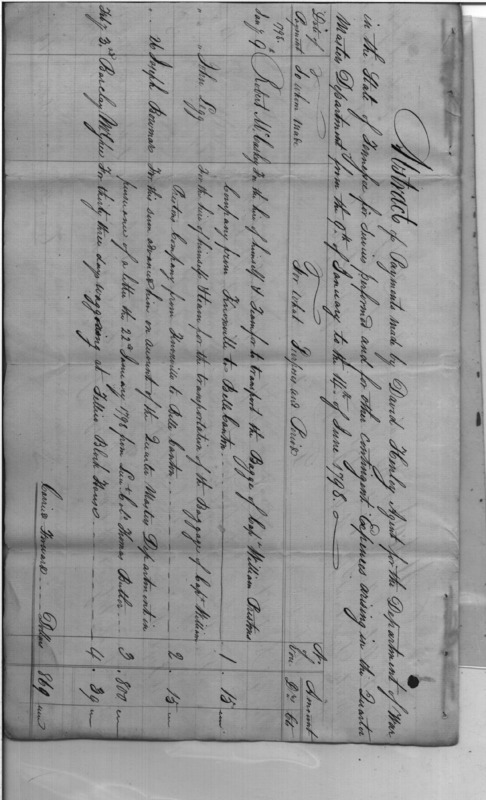 Abstract of Payments made by David Henley Agent for the Department of War
in the State of Tennessee for Services performed and for other contingent Expenses arising in the Quarter
Masters Department from the 9th of January to the 14th of June 1798.
Date of Payment To whom made For what Services and Period No. of Vou. Amount Drs Cts
1798
Jany 9 Robert McCarty For the hire of himself & Team for to transport the Bagge of Capt William Prestons
Company from Knoxville to Bells Canton 1. 15
" " John Legg For the hire of himself & team for the transportation of the Baggage of Capt William
Prestons Company from Knoxville to Bells Canton 2. 15
" 26 Joseph Bowmar For this sum advanced him on account of the Quarter Master Department in
pursuance of a letter the 22d January 1798 from Lieut Col Thomas Butler 3. 800
Feby 3rd Barclay McGhee For thirty three days waggoning at Tellico Block House 4. 39
Carried Forward Dollars 869